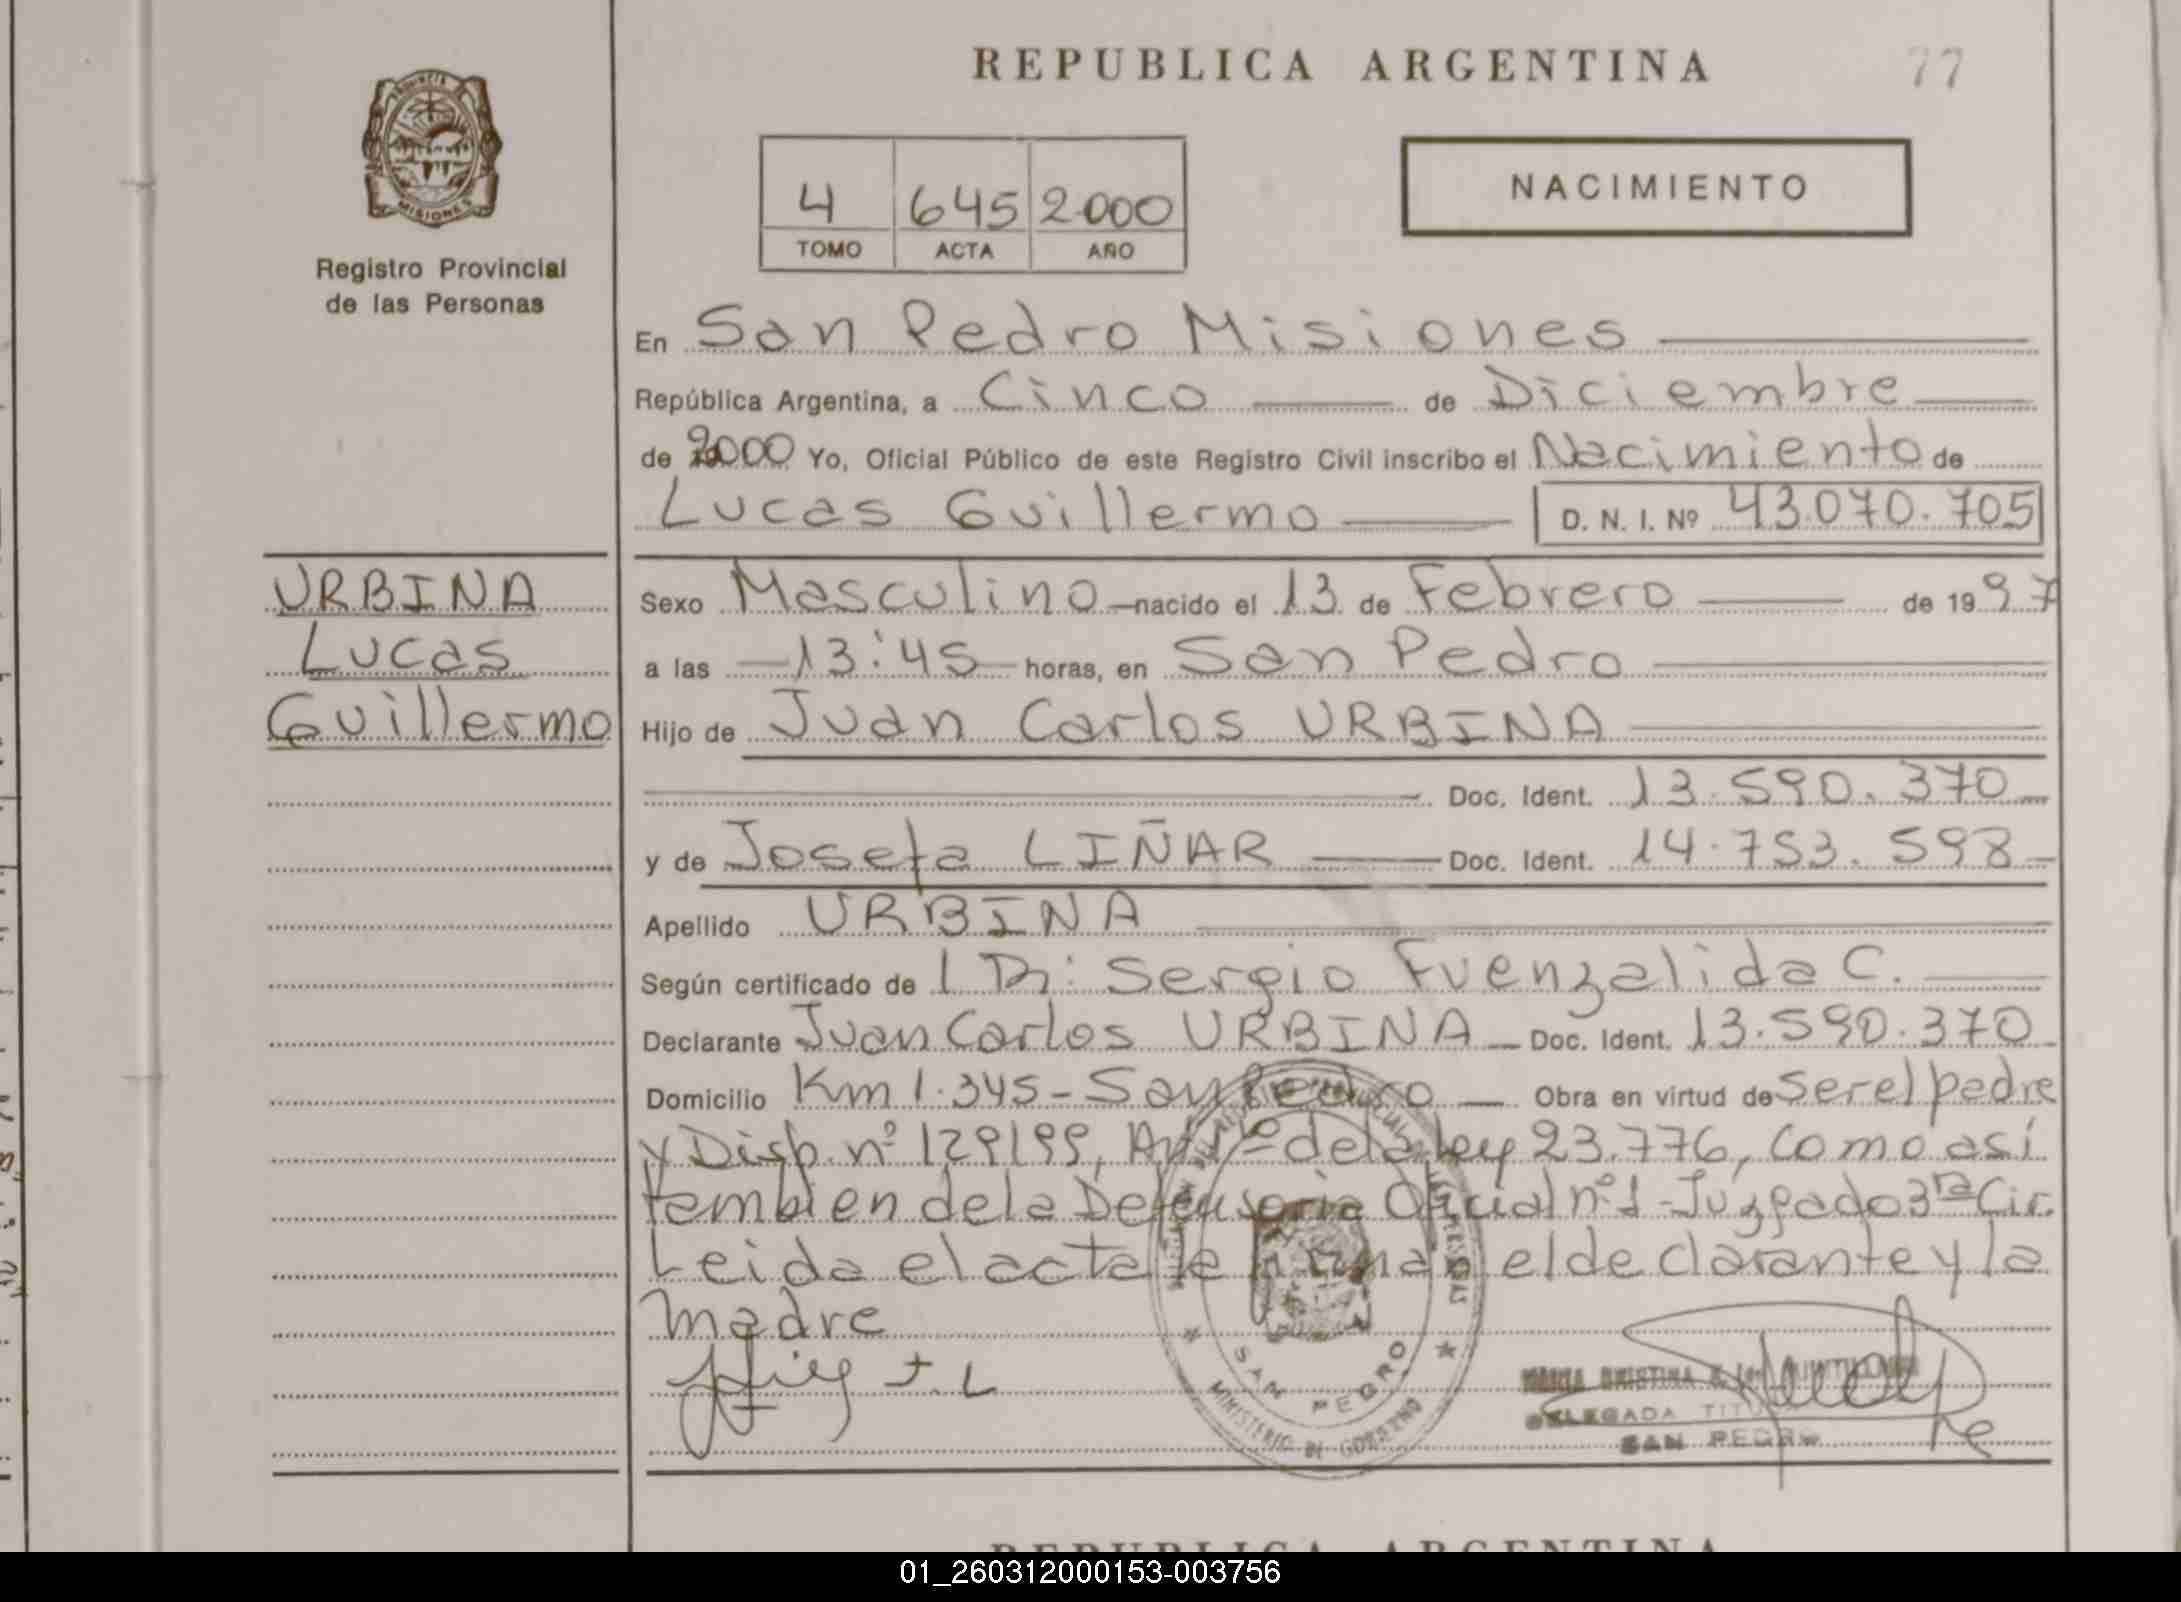 REPUBLICA ARGENTINA
77
PROVINCIA DE
MISIONES
Registro Provincial
de las Personas
4 645 2.000
TOMO ACTA AÑO
NACIMIENTO
En San Pedro Misiones
República Argentina, a Cinco de Diciembre
de 2000 Yo, Oficial Público de este Registro Civil inscribo el Nacimiento de
Lucas Guillermo D. N. I. Nº 43.070.705
URBINA
Lucas
Guillermo
Sexo Masculino nacido el 13 de Febrero de 1997
a las 13:45 horas, en San Pedro
Hijo de Juan Carlos URBINA
Doc. Ident. 13.590.370
y de Josefa LIÑAR Doc. Ident. 14.753.598
Apellido URBINA
Según certificado de Sergio Fuenzalida C.
Declarante Juan Carlos URBINA Doc. Ident. 13.590.370
Domicilio Km 1.345 - San Pedro Obra en virtud de ser el padre
y Disp. nº 129/99, Art 1º de la ley 23.776, como así
tambien de la Defensoria Oficial nº 1 - Juzgado 3ra Cir.
Leida el acta le firman el declarante y la
madre
J. L
SAN PEDRO
MINISTERIO DE GOBIERNO
MARIA CRISTINA
DELEGADA TITULAR
SAN PEDRO
REPUBLICA ARGENTINA
01_260312000153-003756